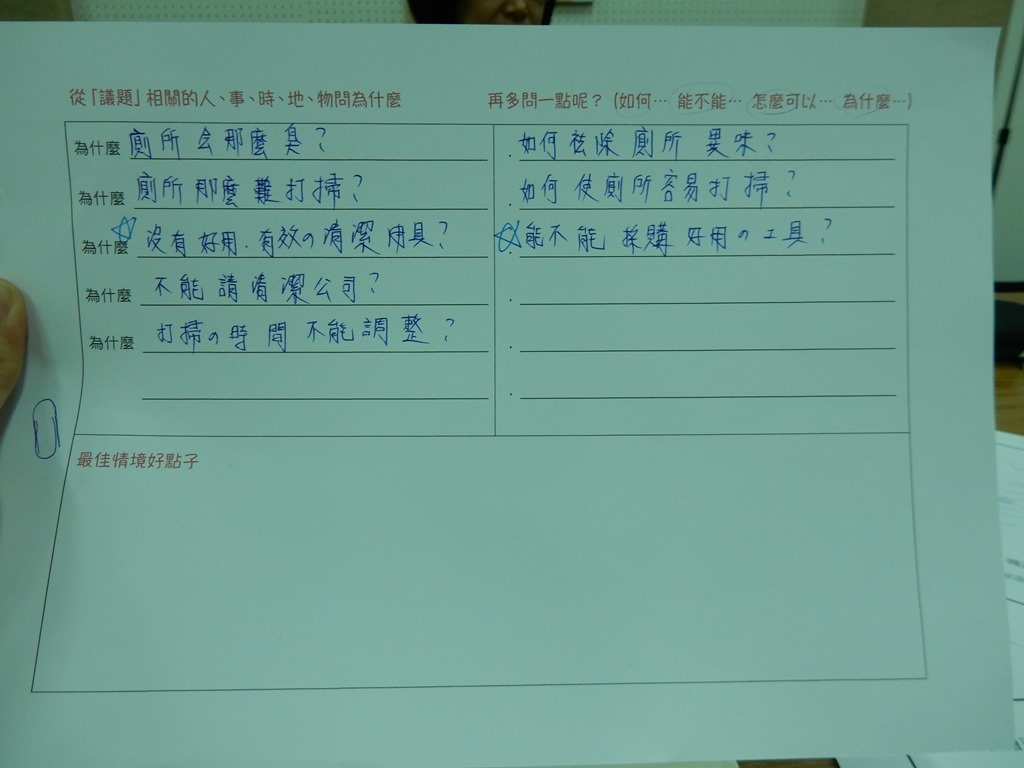 從「議題」相關的人、事、時、地、物問為什麼
再多問一點呢？(如何… 能不能… 怎麼可以… 為什麼…)
為什麼 廁所會那麼臭？
為什麼 廁所那麼難打掃？
為什麼 沒有好用、有效の清潔用具？
為什麼 不能請清潔公司？
為什麼 打掃の時間不能調整？
如何祛除廁所異味？
如何使廁所容易打掃？
能不能採購好用の工具？
最佳情境好點子